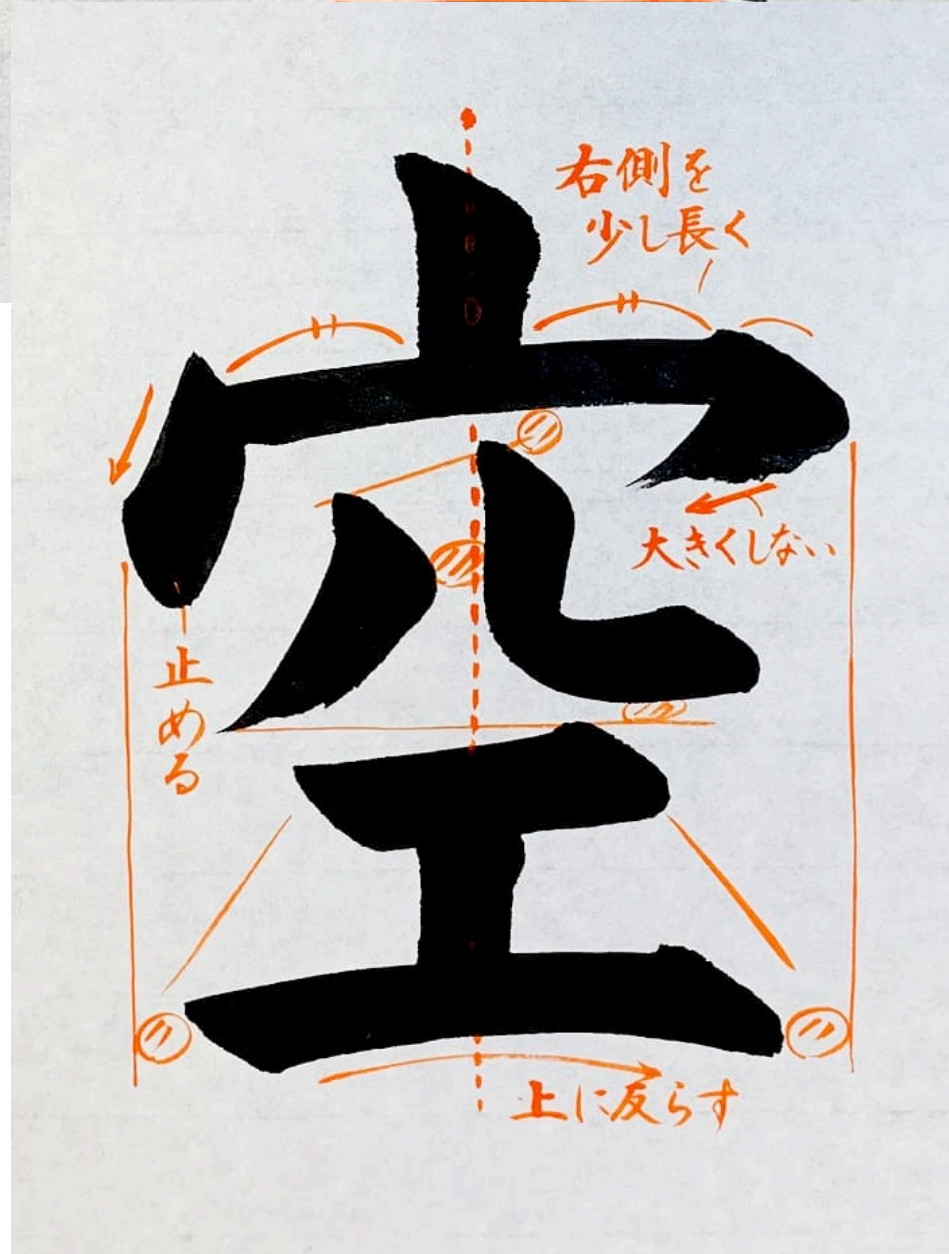 空
右側を
少し長く
大きくしない
止める
上に反らす